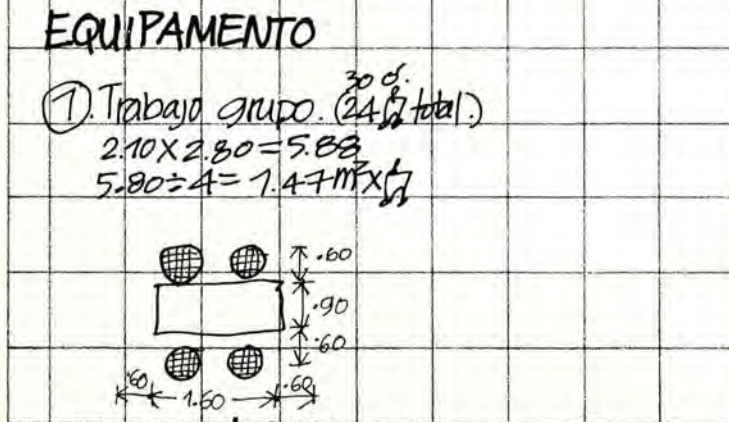 EQUIPAMENTO
30 ó.
① Trabajo grupo. (24 total.)
2.10 X 2.80 = 5.88
5.80 ÷ 4 = 1.47 m² x
.60
.90
.60
.60 1.60 .60